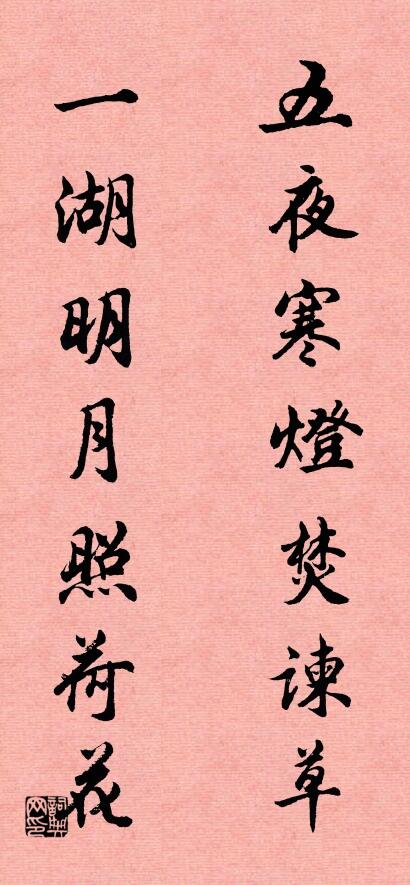 五夜寒燈焚諫草
一湖明月照荷花